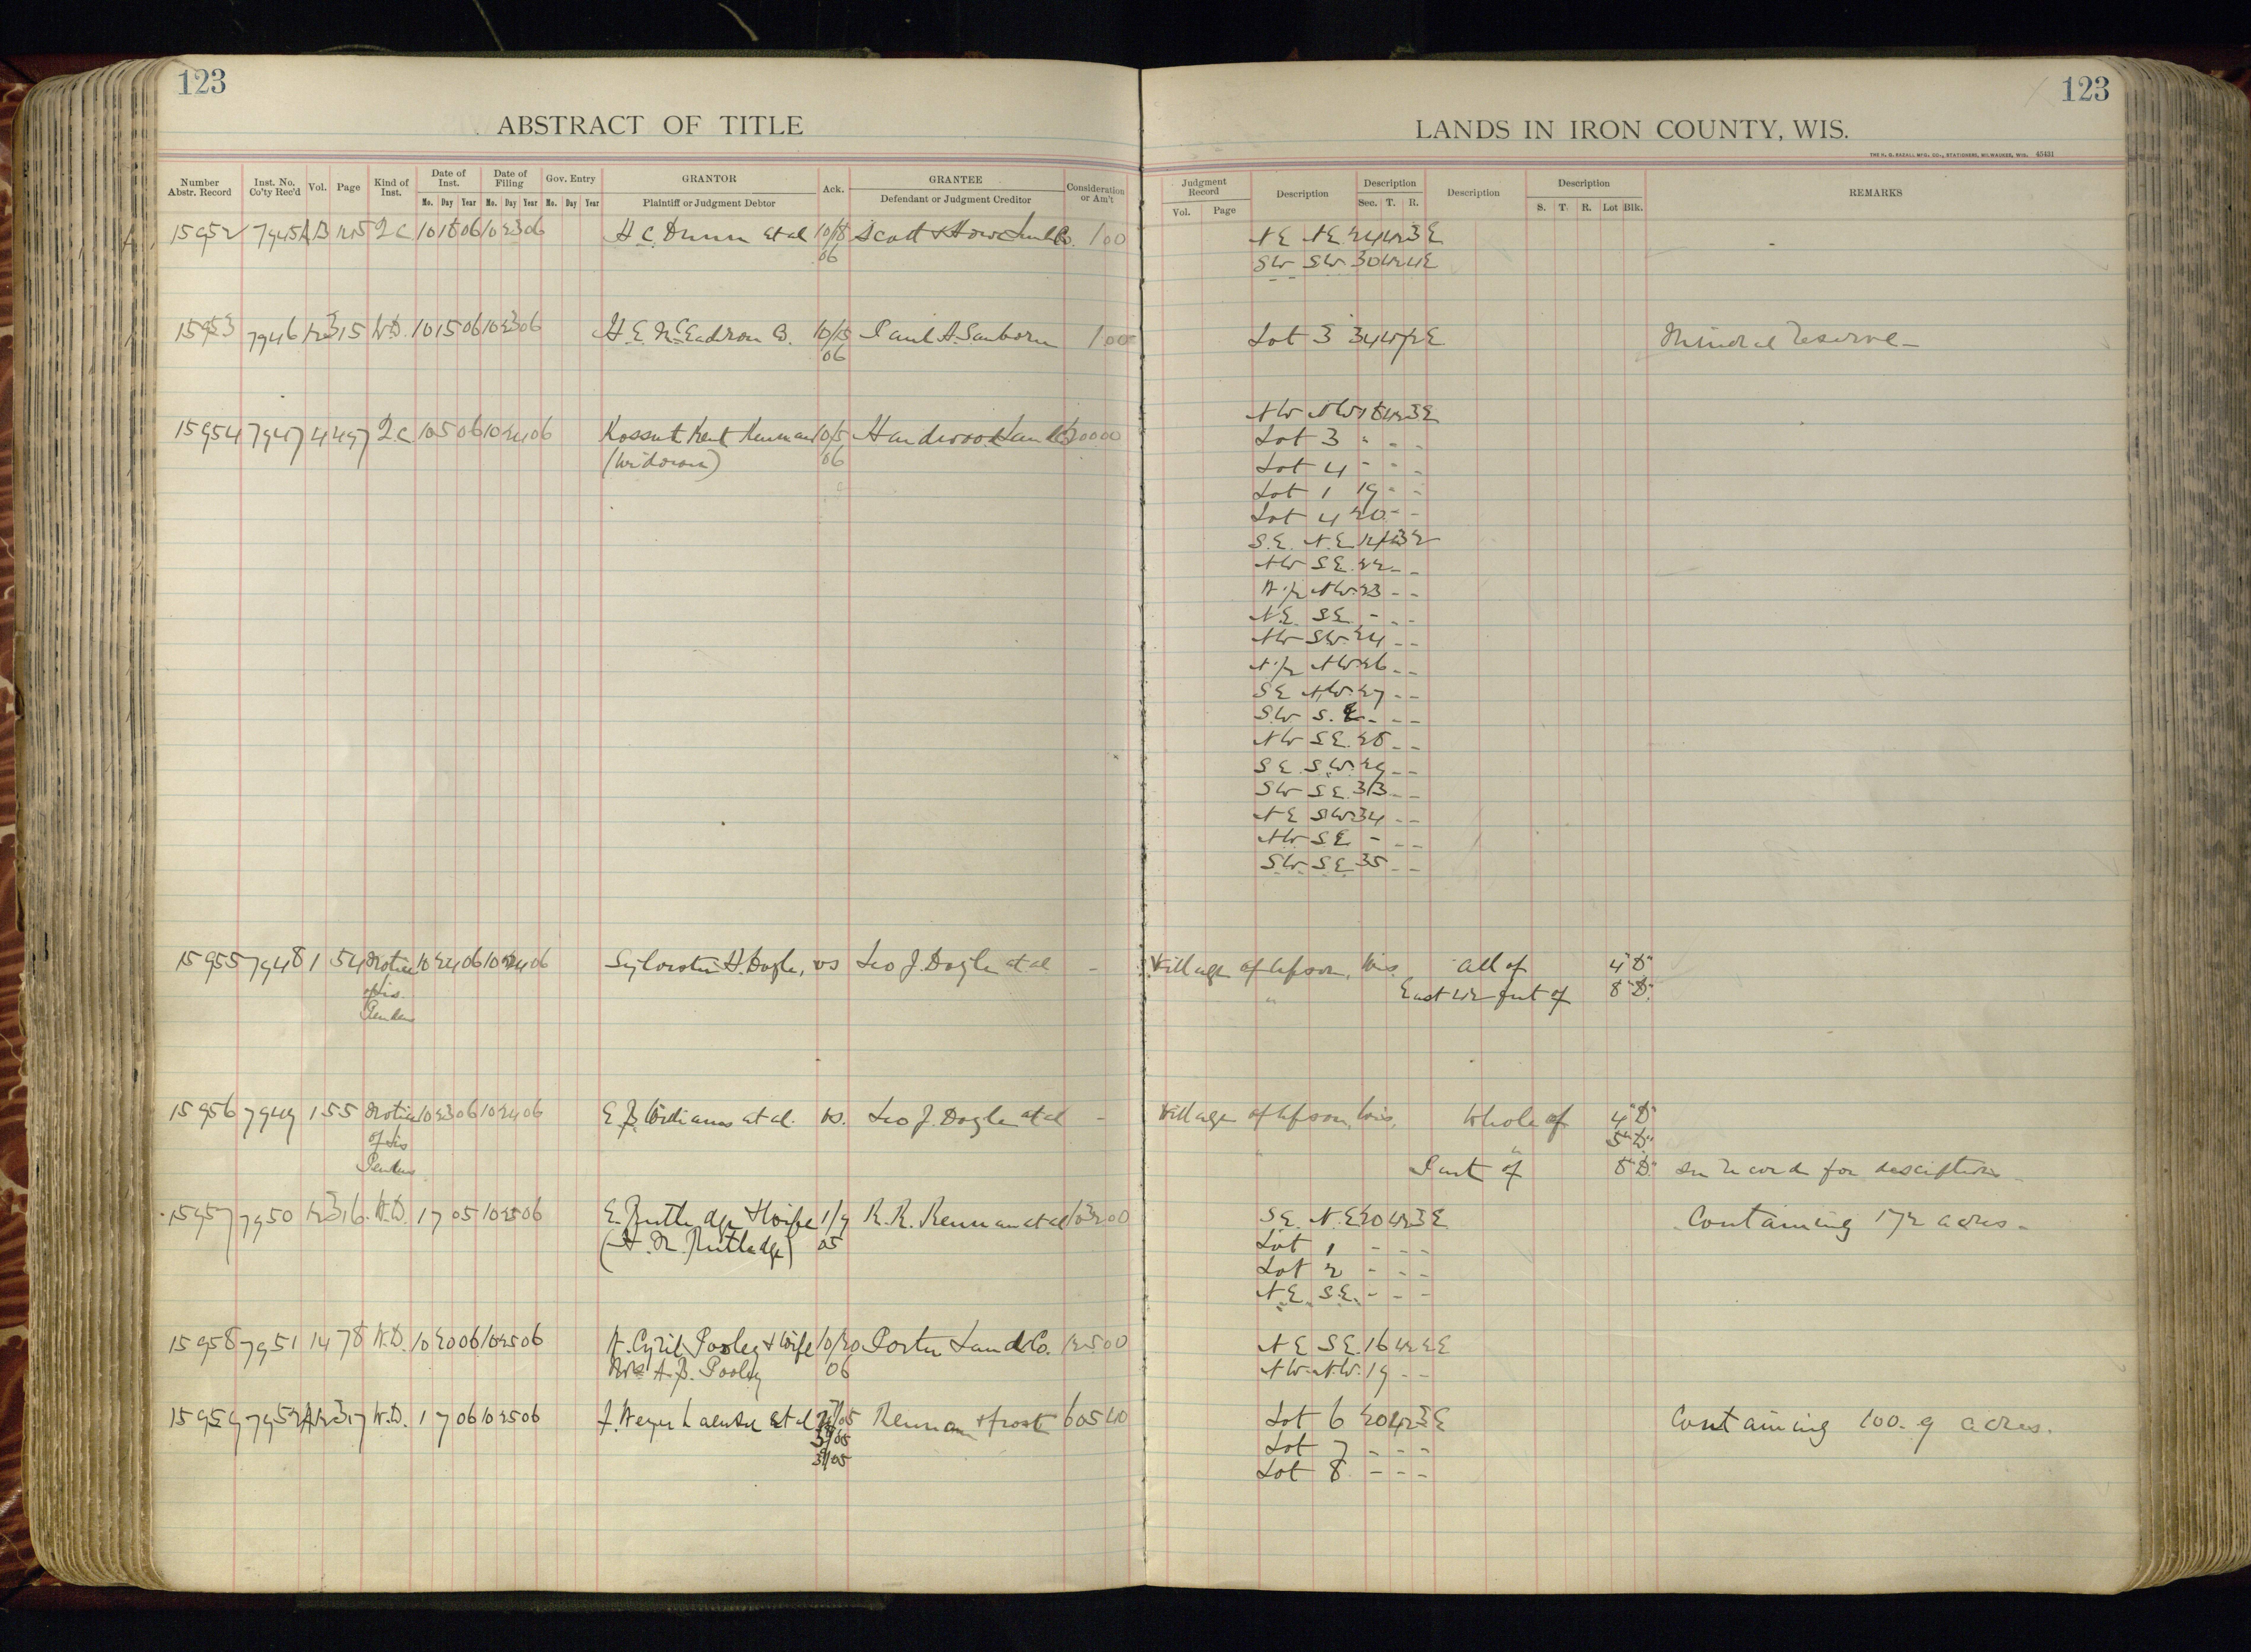 123
123
ABSTRACT OF TITLE
LANDS IN IRON COUNTY, WIS.
THE H. G. RAZALL MFG. CO., STATIONERS, MILWAUKEE, WIS. 45431
Number Abstr. Record Inst. No. Co'ty Rec'd Vol. Page Kind of Inst. Date of Inst. Mo. Day Year Date of Filing Mo. Day Year Gov. Entry Mo. Day Year GRANTOR Plaintiff or Judgment Debtor Ack. GRANTEE Defendant or Judgment Creditor Consideration or Am't
Judgment Record Vol. Page Description Description Sec. T. R. Description Description S. T. R. Lot Blk. REMARKS
15952 7945 Q.C. 10 18 06 10 23 06 H. C. Dunn et al 10/18 Scott & Howe Co. 1 00 NE NE 24 42 3 E
06 SW SW 30 42 4 E
15953 7946 12 315 W.D. 10 15 06 10 23 06 10/15 Paul H. Sanborn 1 00 Lot 3 34 E Mineral reserve
06
NW NW 18 42 3 E
15954 7947 4 497 Q.C. 10 5 06 10 24 06 Kossuth Kent Kennan 10/5 Hardwood Land Co. Lot 3 " - -
(widower) 06 Lot 4 - - -
Lot 1 19 - -
Lot 4 20 - -
S.E. N.E.
NW SE. 22 - -
NW. 23 - -
N.E. SE. - - -
NW SW 24 - -
N 1/2 NW 26 - -
SE N.W. 27 - -
SW S.E. - - -
NW SE. 28 - -
SE. S.W. 29 - -
SW SE. 33 - -
NE SW 34 - -
NW SE. - - -
SW. SE 35 - -
15955 7948 1 54 Notice 10 24 06 10 24 06 Sylvester H. Dogle, vs Leo J. Dogle et al - Village of Upson, Wis. All of 4 "D"
of Lis " East 42 feet of 8 "D"
Pendens
15956 7949 1 55 Notice 10 23 06 10 24 06 E. J. Williams et al. vs. Leo J. Dogle et al - Village of Upson, Wis. Whole of 4 "D"
of Lis " 5 "D"
Pendens Part of 8 "D" See record for description
15957 7950 12 316 W.D. 1 7 05 10 25 06 E. Rutledge & Wife 1/9 R. R. Kennan et al S.E. N.E. 20 42 3 E Containing 172 acres.
(H. M. Rutledge) 05 Lot 1 - - -
Lot 2 - - -
NE SE. - - -
15958 7951 14 78 W.D. 10 20 06 10 25 06 H. Cyril Pooley & Wife 10/20 Porter Land Co. 125 00 NE SE. 16 42 2 E
A. B. Pooley 06 NW. N.W. 19 - -
15959 7952 12 317 W.D. 1 7 06 10 25 06 et al Kennan & Frost 605 40 Lot 6 20 42 3 E Containing 100.9 acres.
Lot 7 - - -
Lot 8 - - -